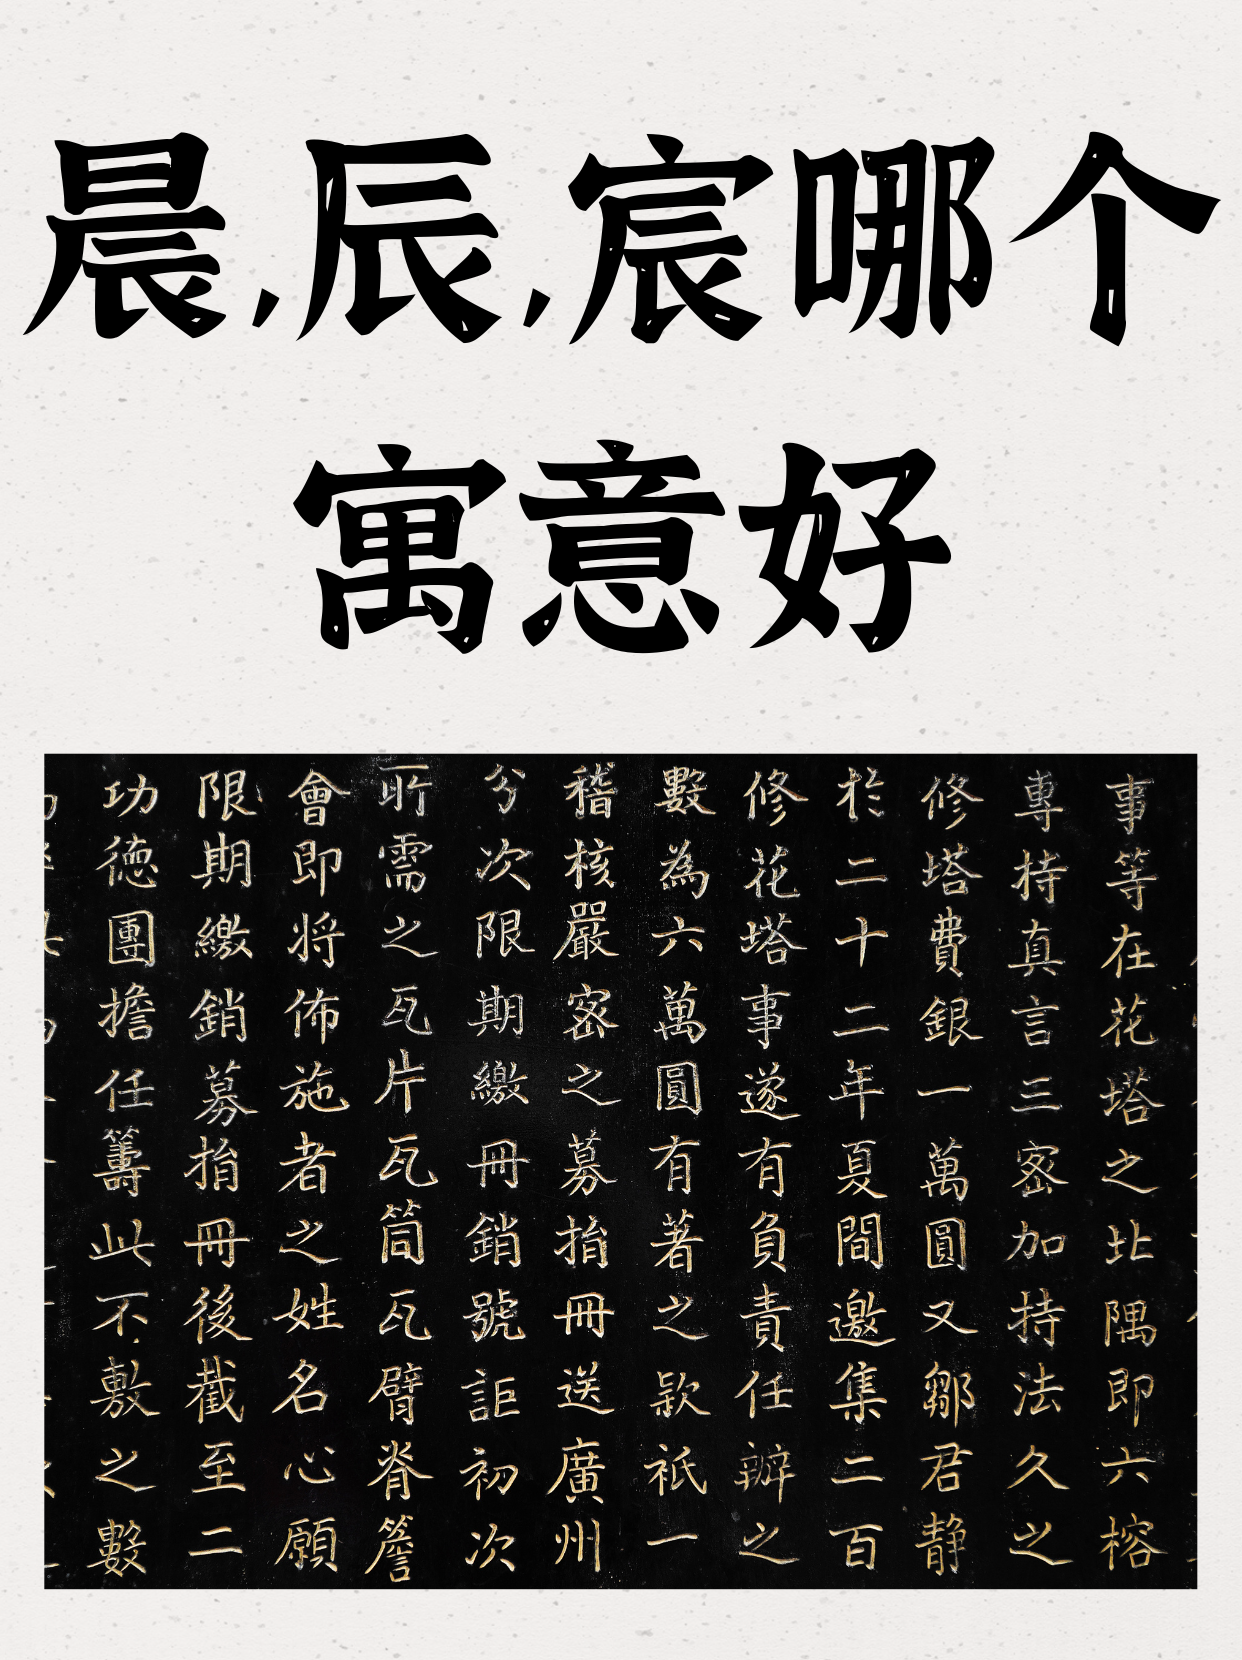 晨,辰,宸哪个
寓意好
事等在花塔之北隅即六榕
專持真言三密加持法久之
修塔費銀一萬圓又鄒君静
於二十二年夏間邀集二百
修花塔事遂有負責任辦之
數為六萬圓有著之款祇一
稽核嚴密之募捐冊送廣州
兮次限期繳冊銷號詎初次
所需之瓦片瓦筒瓦臂脊簷
會即将佈施者之姓名心願
限期繳銷募捐冊後截至二
功德團擔任籌此不敷之數